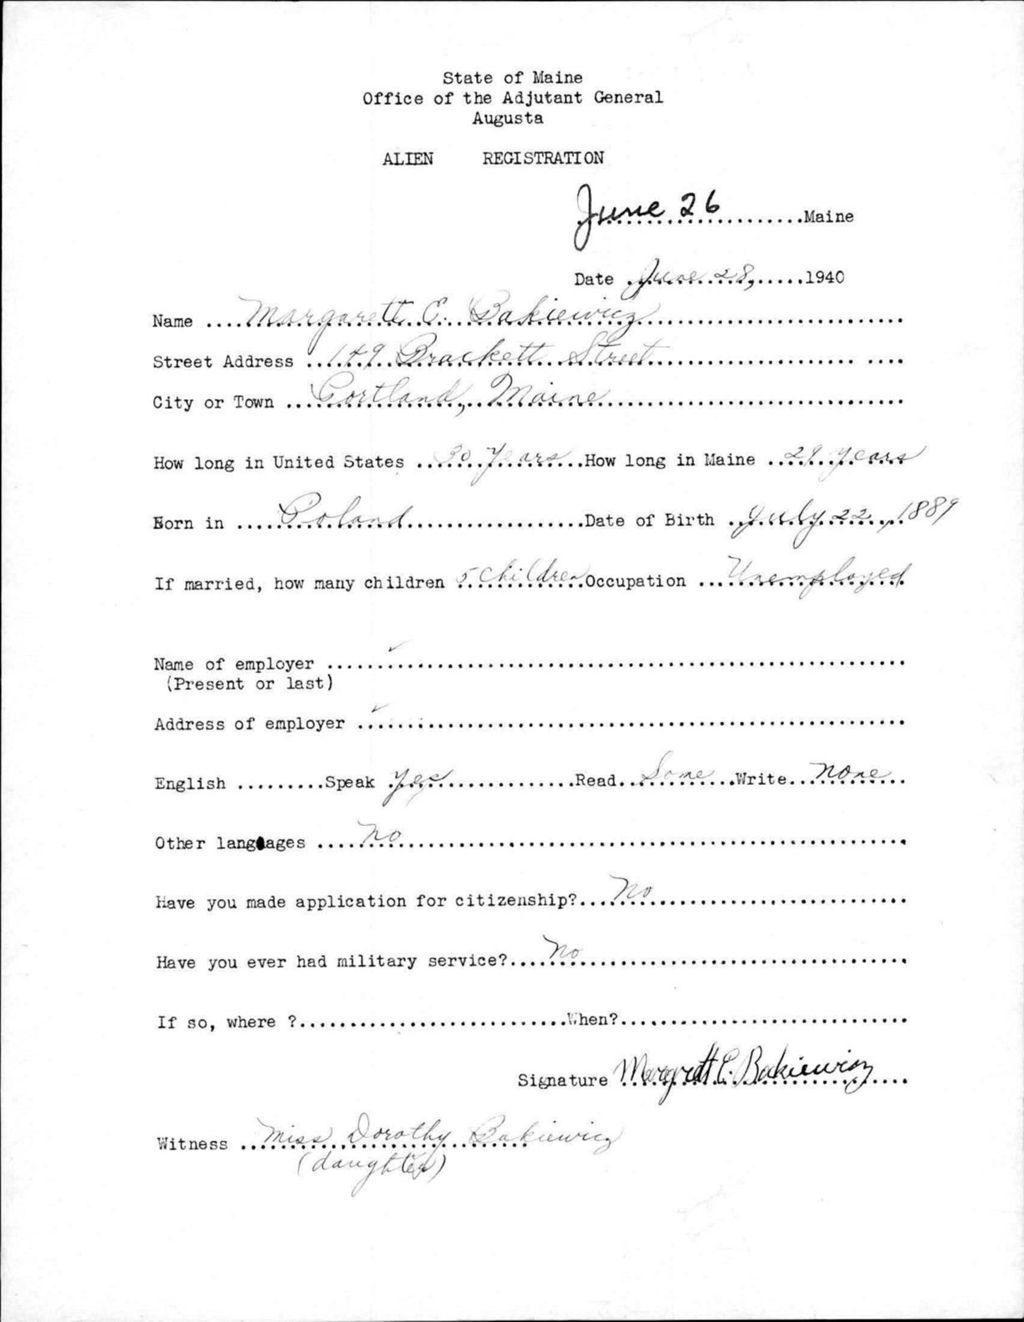 State of Maine
Office of the Adjutant General
Augusta
ALIEN REGISTRATION
June 26..........Maine
Date June 28,......1940
Name ....Margarett E. Bakiewicz..........................
Street Address ..149 Brackett Street........................
City or Town ...Portland, Maine..............................
How long in United States ...30 Years...How long in Maine ..29 years
Born in .....Poland...................Date of Birth .July 22, 1889
If married, how many children 5 children Occupation ...Unemployed
Name of employer ..........................................................
(Present or last)
Address of employer .......................................................
English .........Speak yes..............Read..Some..Write...none..
Other languages ....no..................................................
Have you made application for citizenship?...No..........................
Have you ever had military service?....No.................................
If so, where ?...........................When?.............................
Signature Margrett E. Bakiewicz....
Witness ..Miss Dorothy Bakiewicz
(daughter)